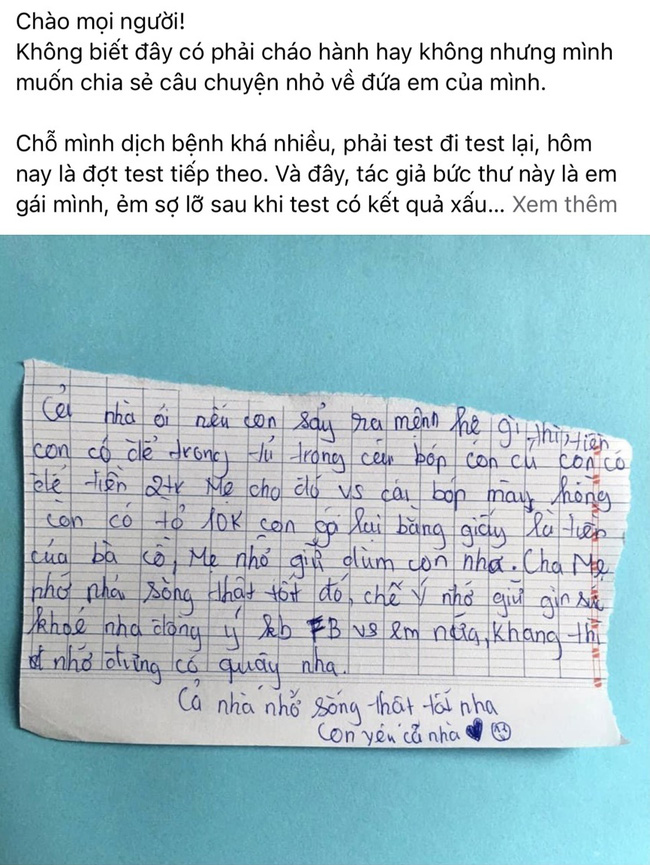 Chào mọi người!
Không biết đây có phải cháo hành hay không nhưng mình
muốn chia sẻ câu chuyện nhỏ về đứa em của mình.
Chỗ mình dịch bệnh khá nhiều, phải test đi test lại, hôm
nay là đợt test tiếp theo. Và đây, tác giả bức thư này là em
gái mình, ẻm sợ lỡ sau khi test có kết quả xấu... Xem thêm
Cả nhà ơi nếu con sảy ra mệnh hệ gì, thì tiền
con có để trong tủ trong cái bóp con cú con có
để tiền 2tr Mẹ cho đó vs cái bóp màu hồng
còn có tờ 10K con gói lại bằng giấy là tiền
của bà cô, Mẹ nhớ giữ dùm con nha. Cha Mẹ
nhớ phải sống thật tốt đó, chế Ý nhớ giữ gìn sức
khoẻ nha đồng ý kb FB vs em nữa, Khang thì
nhớ đừng có quậy nha.
Cả nhà nhớ sống thật tốt nha
Con yêu cả nhà